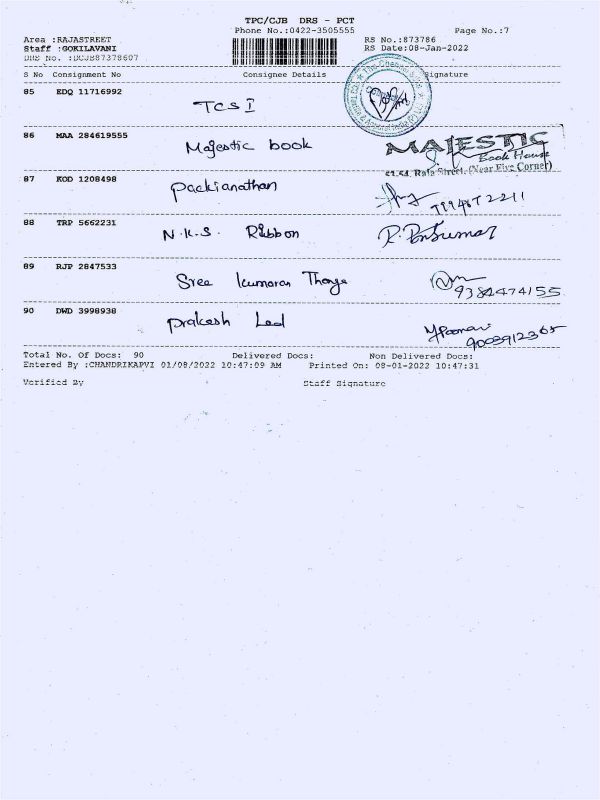 TPC/CJB DRS - PCT
Phone No.:0422-3505555 Page No.:7
Area :RAJASTREET RS No.:873786
Staff :GOKILAVANI RS Date:08-Jan-2022
DRS No. :DCJB87378607
S No Consignment No Consignee Details Signature
85 EDQ 11716992
TCSI
86 MAA 284619555
Majestic book MAJESTIC
Book House
Raja Street, (Near Five Corner)
87 KOD 1208498
Packianathan
88 TRP 5662231
N.K.S. Ribbon
89 RJP 2847533
Sree kumaran Thanga
9384474155
90 DWD 3998938
prakash Lad
9003912365
Total No. Of Docs: 90 Delivered Docs: Non Delivered Docs:
Entered By :CHANDRIKAPVI 01/08/2022 10:47:09 AM Printed On: 08-01-2022 10:47:31
Verified By Staff Signature